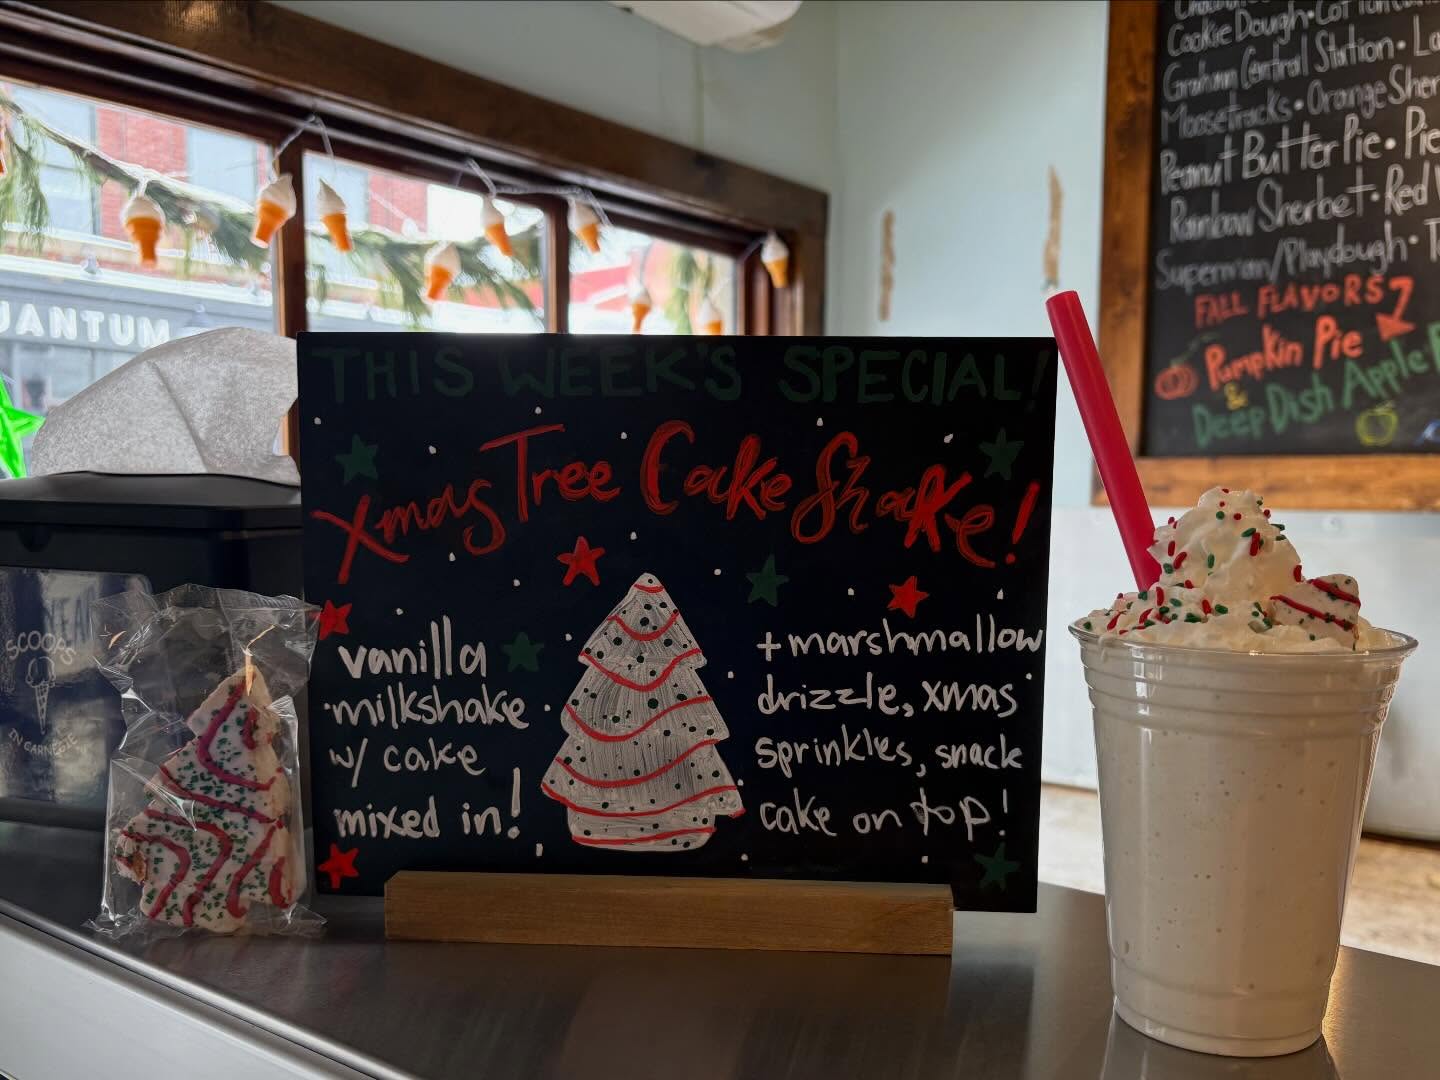 Cookie Dough • Cotton
Graham Central Station •
Moosetracks • Orange Sher
Peanut Butter Pie • Pie
Rainbow Sherbet • Red
Superman/Playdough •
FALL FLAVORS
Pumpkin Pie
&
Deep Dish Apple
UANTUM
THIS WEEK'S SPECIAL!
Xmas Tree Cake Shake!
vanilla
milkshake
w/ cake
mixed in!
+ marshmallow
drizzle, xmas
sprinkles, snack
cake on top!
SCOOPS
IN CARNEGIE